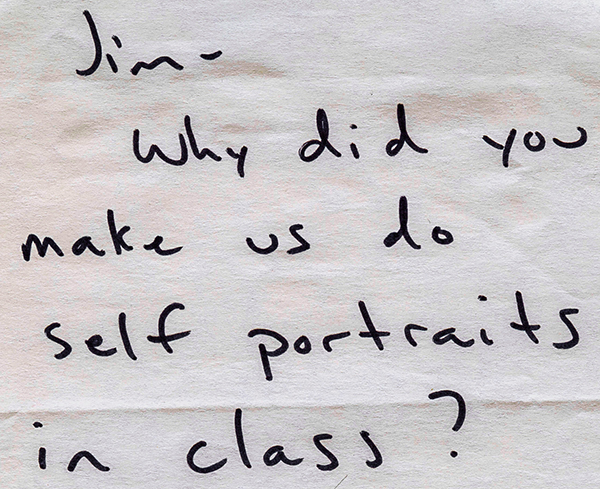 Jim-
Why did you
make us do
self portraits
in class?